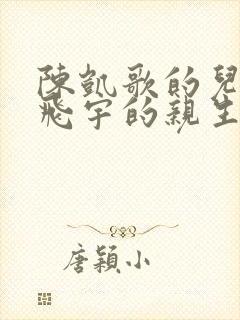 陳凱歌的兒
飛宇的親生
唐穎小